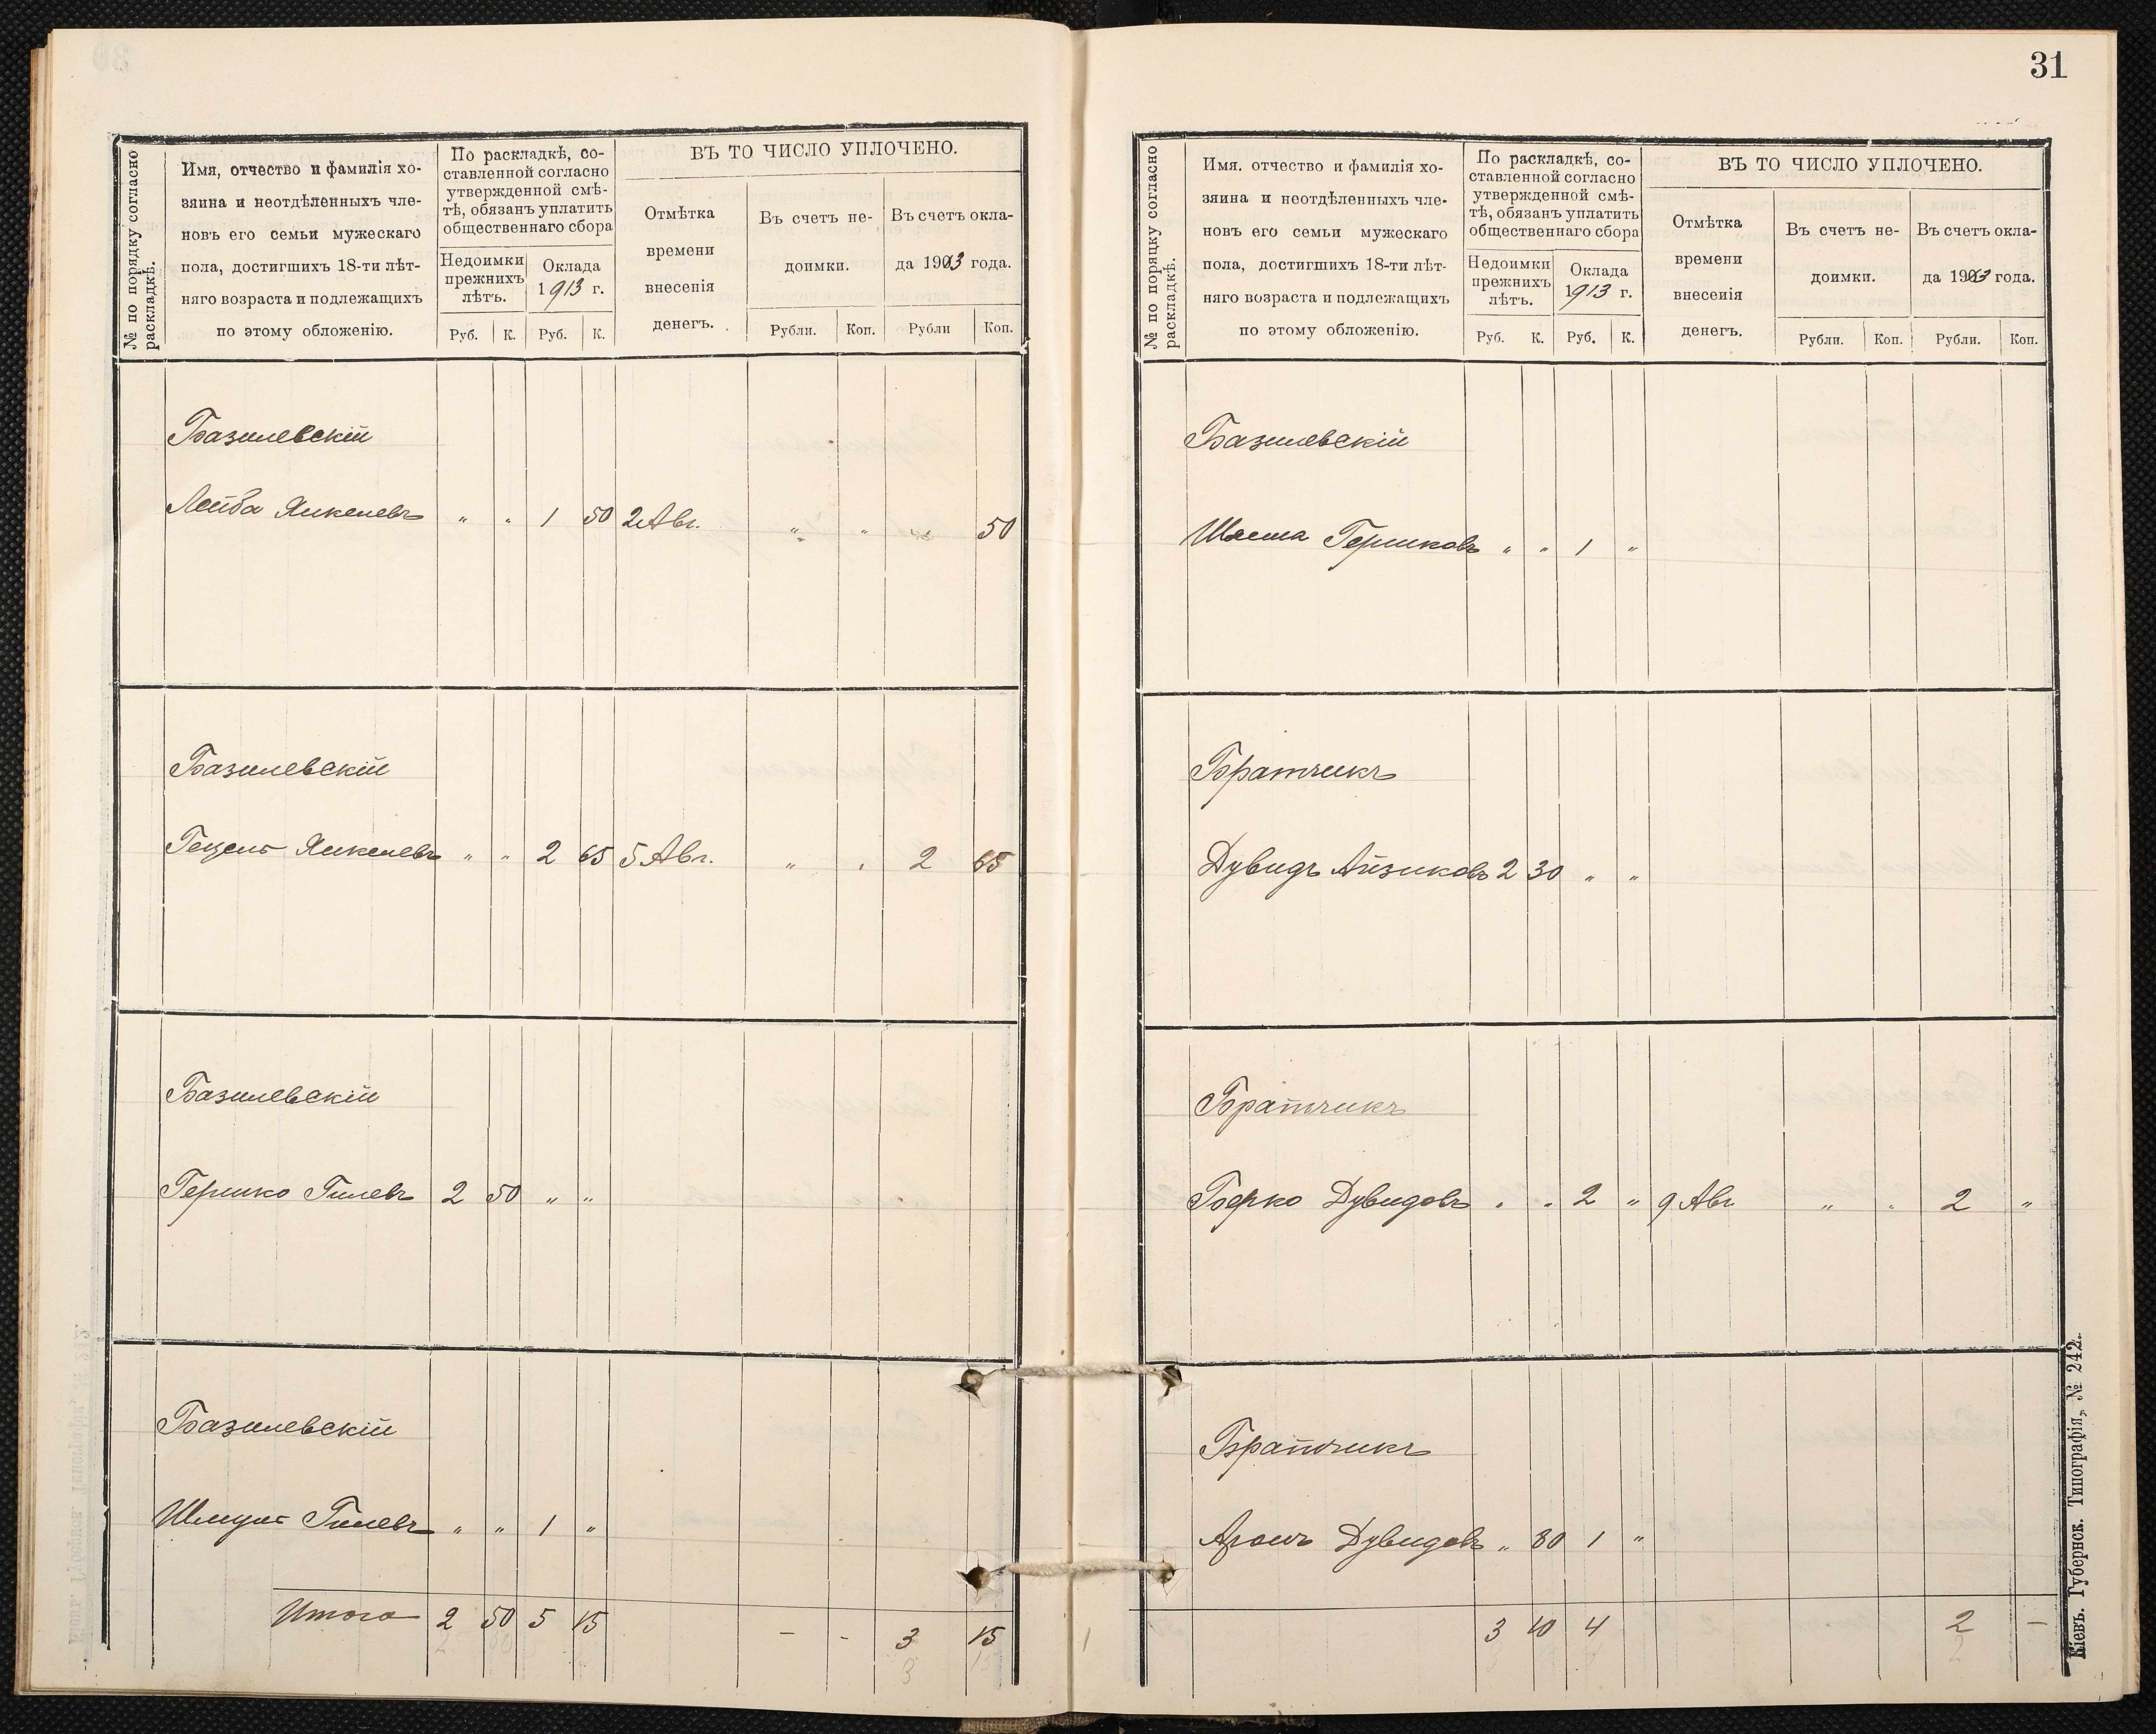 31
№ по порядку согласно раскладкѣ.
Имя, отчество и фамилія хо-
зяина и неотдѣленныхъ чле-
новъ его семьи мужескаго
пола, достигшихъ 18-ти лѣт-
няго возраста и подлежащихъ
по этому обложенію.
По раскладкѣ, со-
ставленной согласно
утвержденной смѣ-
тѣ, обязанъ уплатить
общественнаго сбора
Недоимки
прежнихъ
лѣтъ.
Оклада
1913 г.
Руб. К. Руб. К.
ВЪ ТО ЧИСЛО УПЛОЧЕНО.
Отмѣтка
времени
внесенія
денегъ.
Въ счетъ не-
доимки.
Въ счетъ окла-
да 1913 года.
Рубли. Коп. Рубли Коп.
Базилевскій
Лейба Янкелевъ " " 1 50 2 Авг. " " " 50
Базилевскій
Гецель Янкелевъ " " 2 65 5 Авг. " " 2 65
Базилевскій
Гершко Гилевъ 2 50 " "
Базилевскій
Шмуль Гилевъ " " 1 "
Итого 2 50 5 15 - - 3 15
№ по поряцку согласно раскладкѣ.
Имя. отчество и фамилія хо-
зяина и неотдѣленныхъ чле-
новъ его семьи мужескаго
пола, достигшихъ 18-ти лѣт-
няго возраста и подлежащихъ
по этому обложенію.
По раскладкѣ, со-
ставленной согласно
утвержденной смѣ-
тѣ, обязанъ уплатить
общественнаго сбора
Недоимки
прежнихъ
лѣтъ.
Оклада
1913 г.
Руб. К. Руб. К.
ВЪ ТО ЧИСЛО УПЛОЧЕНО.
Отмѣтка
времени
внесенія
денегъ.
Въ счетъ не-
доимки.
Въ счетъ окла-
да 1913 года.
Рубли. Коп. Рубли. Коп.
Базилевскій
Гершковъ " " 1 "
Братчикъ
Дувидъ Айзиковъ 2 30 " "
Братчикъ
Берко Дувидовъ " " 2 " 9 Авг. " " 2 "
Братчикъ
Аронъ Дувидовъ " 80 1 "
3 10 4 2 -
Кіевъ. Губернск. Типографія, № 242.